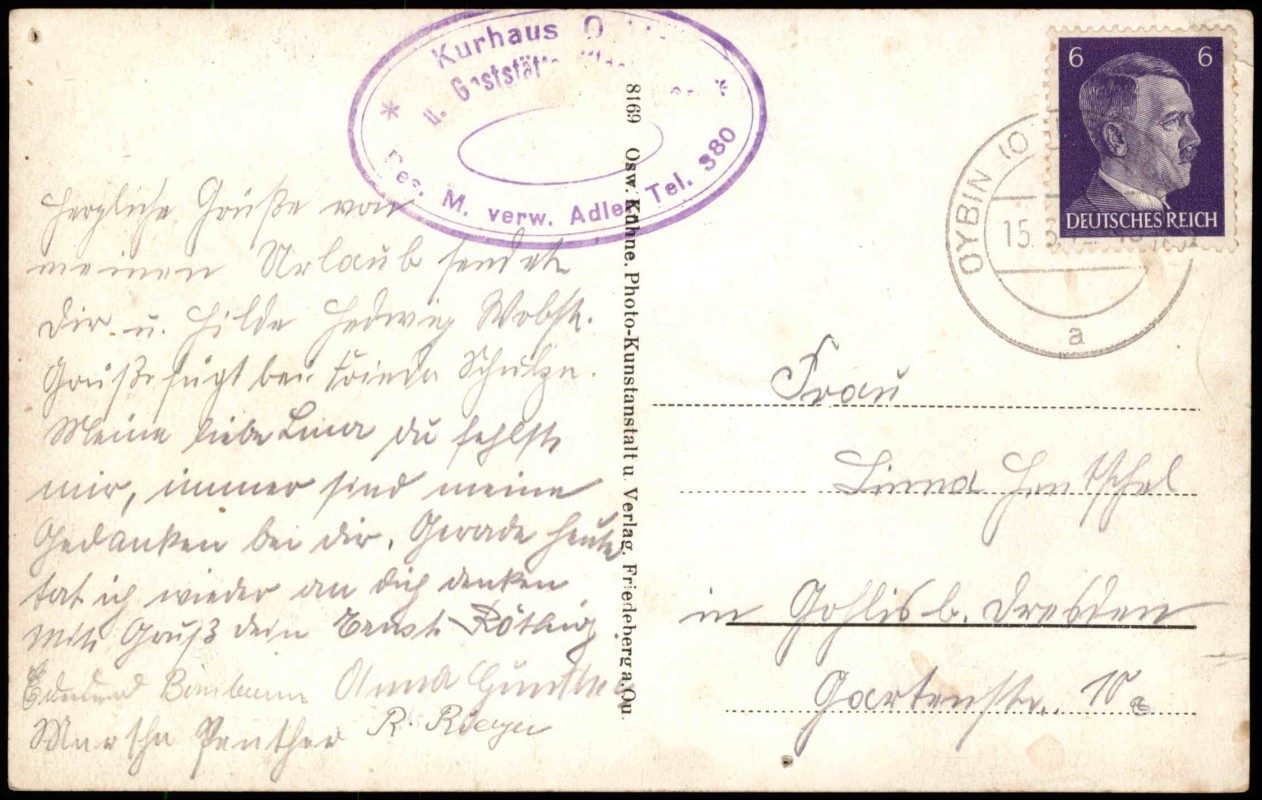 Kurhaus
u. Gaststätte
Bes. M. verw. Adler Tel. 380
Herzliche Grüße von
meinen Urlaub sendet
Dir u. Hilde Hedwig
Grüße fügt bei Frieda Schulze.
Meine liebe Lina du fehlst
mir, immer sind meine
Gedanken bei dir. Gerade heute
tat ich wieder an dich denken
Mit Gruß dein Ernst
Anna Günther
Martha Penther R. Rieger
8169 Osw. Kühne, Photo-Kunstanstalt u. Verlag, Friedeberg a. Qu.
6 6
DEUTSCHES REICH
OYBIN (10
15.
a
Frau
Linna Hentschel
in Gohlis b. Dresden
Gartenstr. 10